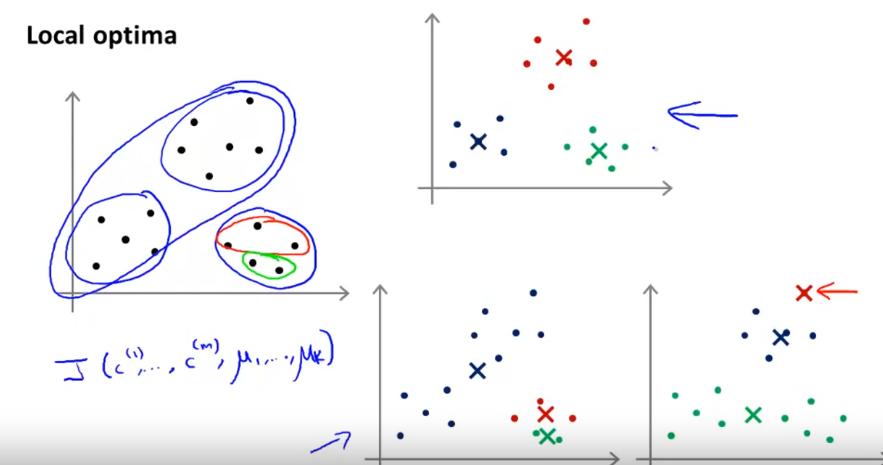 Local optima
J (c⁽¹⁾, ..., c⁽ᵐ⁾, μ₁, ..., μ_K)